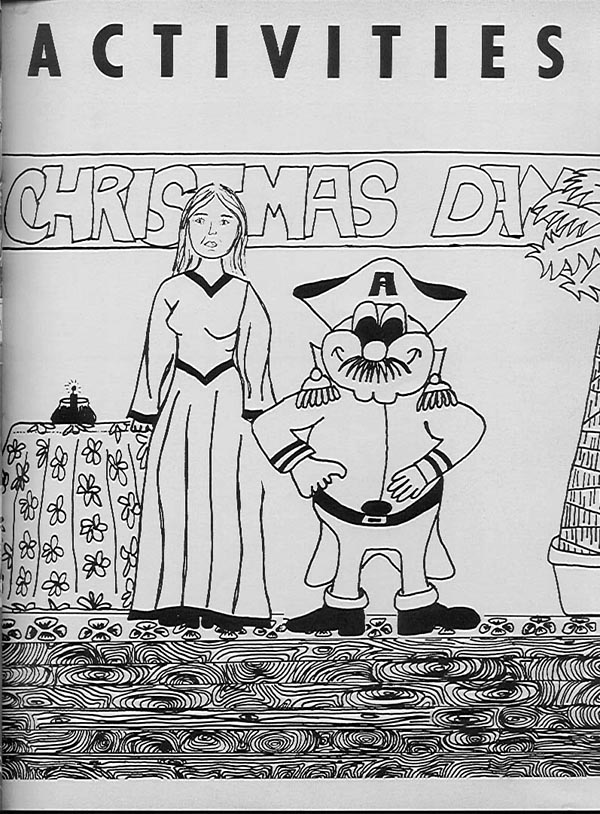 ACTIVITIES
CHRISTMAS DAY
A